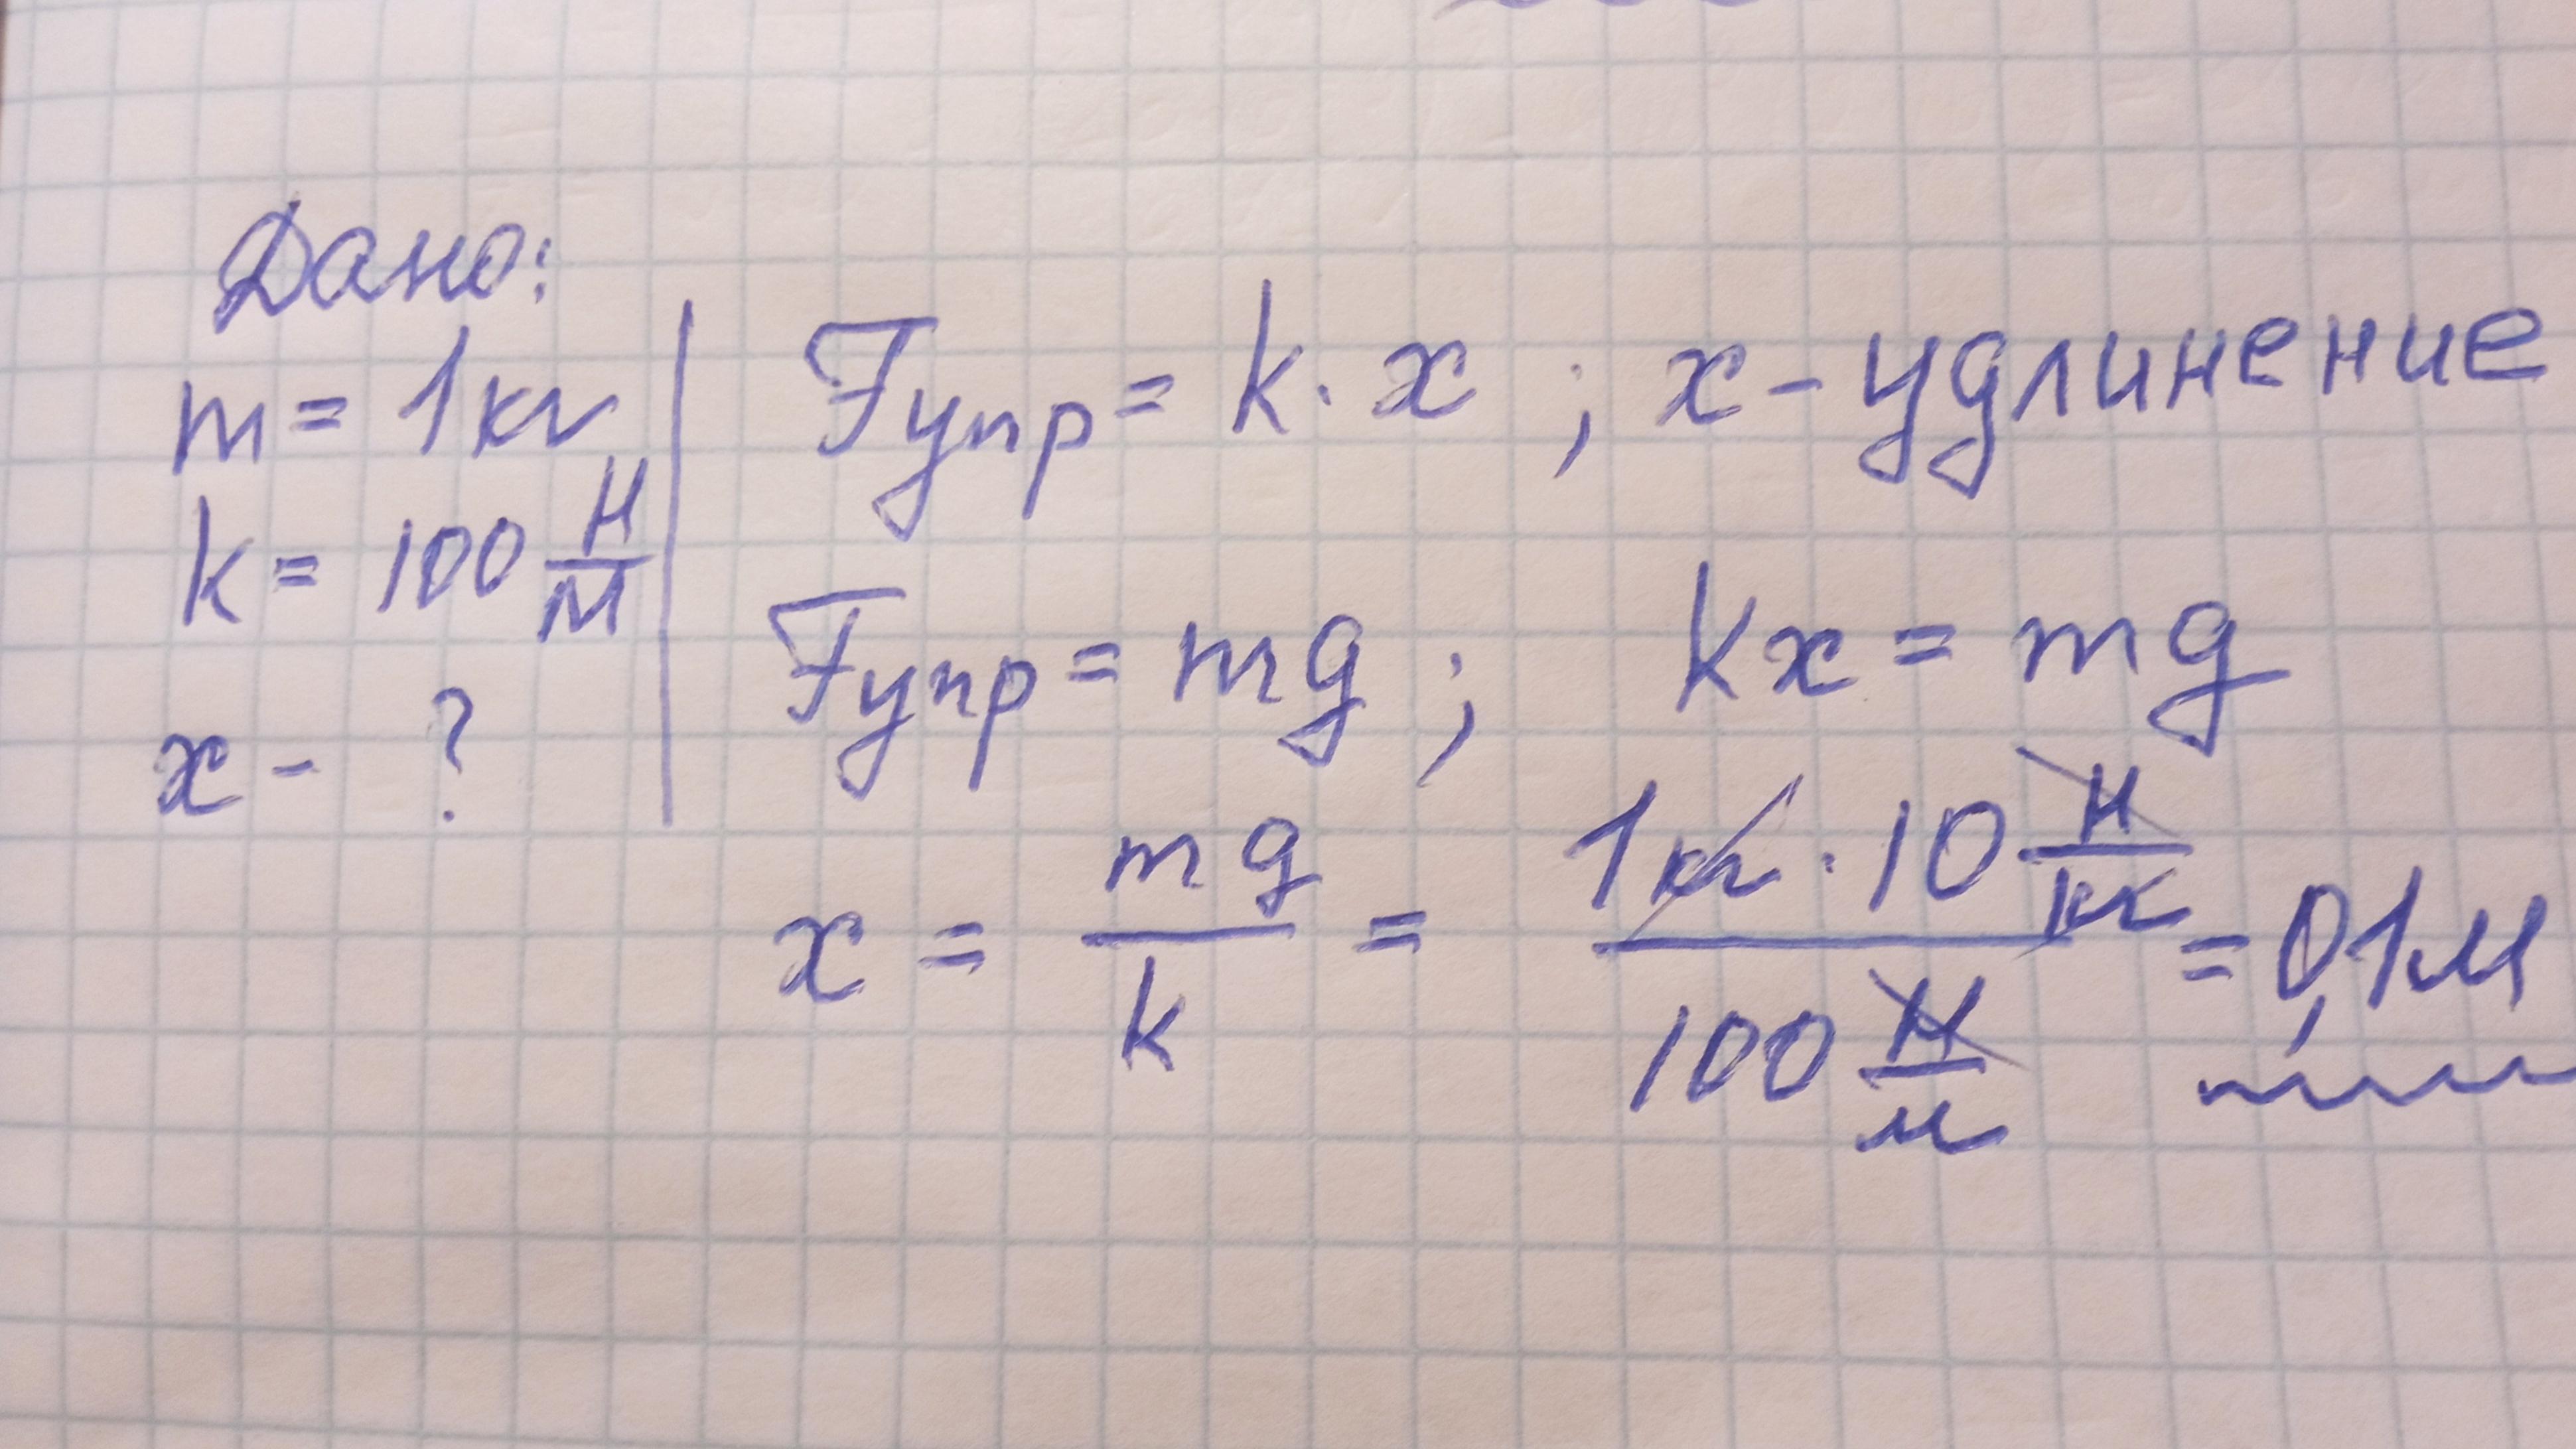 Дано:
m = 1 кг
k = 100 Н/м
x - ?
Fупр = k · x ; x - удлинение
Fупр = mg ; kx = mg
x = mg/k = (1 кг · 10 Н/кг)/(100 Н/м) = 0,1 м